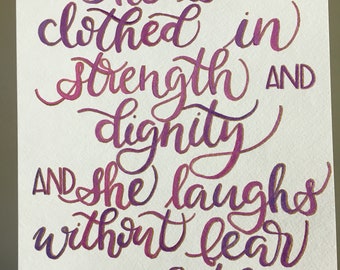 clothed in
strength AND
dignity
AND she laughs
without fear